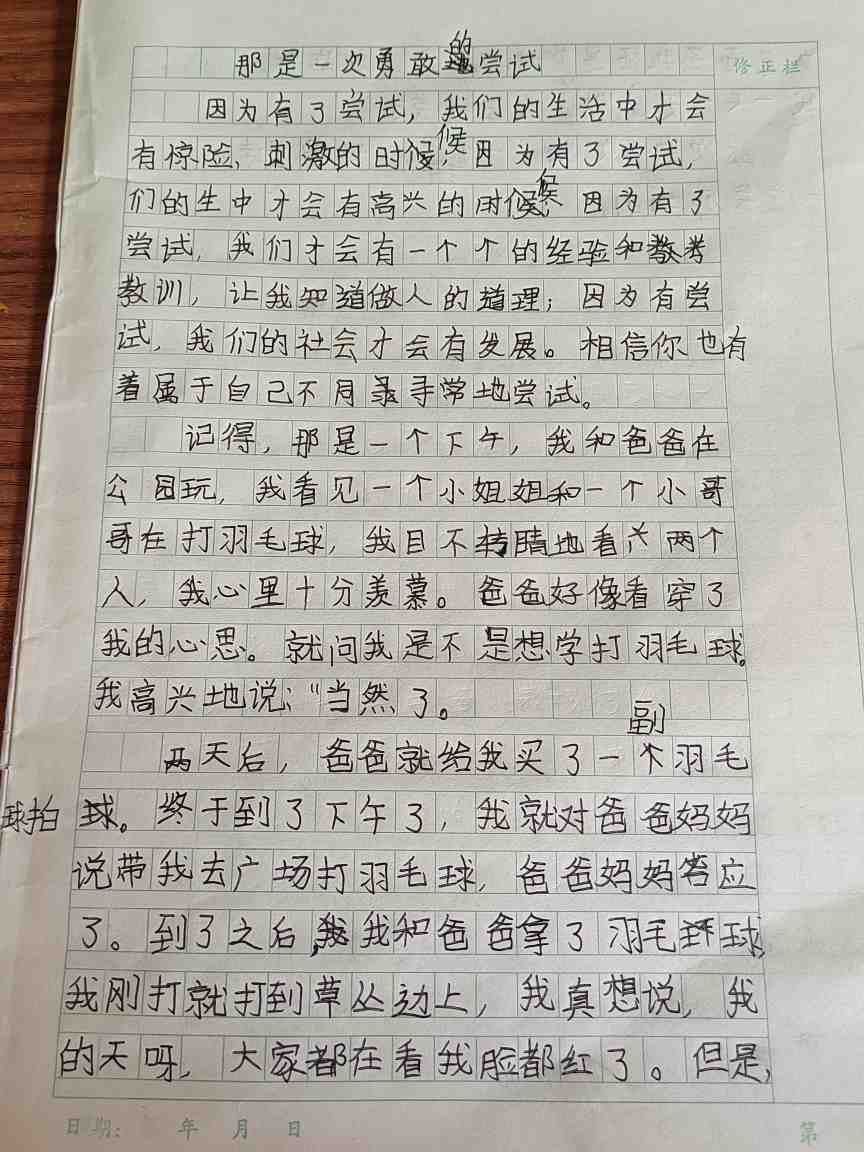 那是一次勇敢的尝试
修正栏
因为有了尝试，我们的生活中才会
有惊险、刺激的时候，因为有了尝试，
们的生中才会有高兴的时候，因为有了
尝试，我们才会有一个个的经验和
教训，让我知道做人的道理；因为有尝
试，我们的社会才会有发展。相信你也有
着属于自己不寻常地尝试。
记得，那是一个下午，我和爸爸在
公园玩，我看见一个小姐姐和一个小哥
哥在打羽毛球，我目不转睛地看六两个
人，我心里十分羡慕。爸爸好像看穿了
我的心思。就问我是不是想学打羽毛球。
我高兴地说：“当然了。
两天后，爸爸就给我买了一副羽毛
球拍。终于到了下午3，我就对爸爸妈妈
说带我去广场打羽毛球，爸爸妈妈答应
了。到了之后，我和爸爸拿了羽毛球，
我刚打就打到草丛边上，我真想说，我
的天呀，大家都在看我脸都红了。但是，
日期： 年 月 日 第